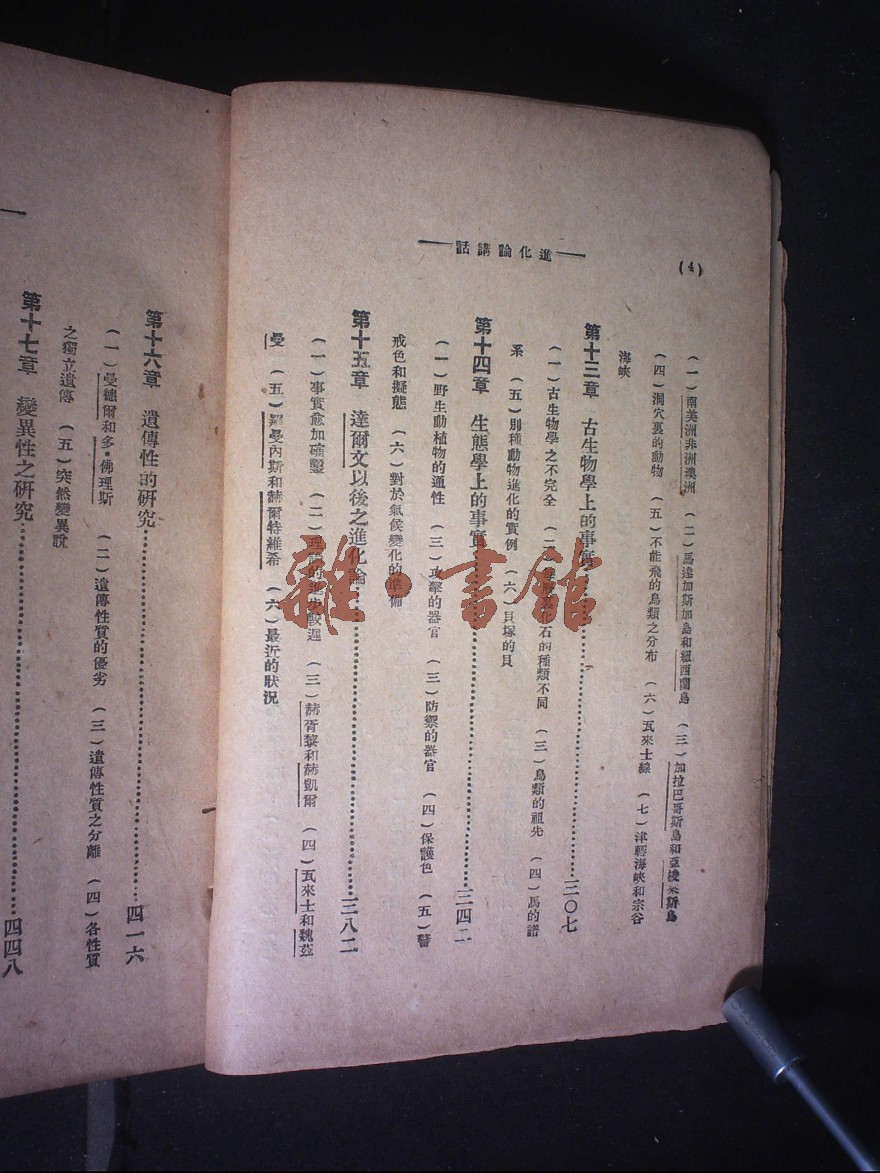 (4)
——進化論講話——
(一)南美洲非洲澳洲　(二)馬達加斯加島和紐西蘭島　(三)加拉巴哥斯島和亞
(四)洞穴裏的動物　(五)不能飛的鳥類之分布　(六)瓦來士線　(七)津輕海峽和宗谷
海峽
第十三章　古生物學上的事實……三〇七
(一)古生物學之不完全　化石的種類不同　(三)鳥類的祖先　(四)馬的譜
系　(五)別種動物進化的實例　(六)貝塚的貝
第十四章　生態學上的事實……三四二
(一)野生動植物的適性　(三)攻擊的器官　(三)防禦的器官　(四)保護色　(五)警
戒色和擬態　(六)對於氣候變化的準備
第十五章　達爾文以後之進化論……三八二
(一)事實愈加確鑿　(二)理論的進步較遲　(三)赫胥黎和赫凱爾　(四)瓦來士和魏茲
曼　(五)羅曼內斯和赫爾特維希　(六)最近的狀況
第十六章　遺傳性的研究……四一六
(一)曼德爾和多·佛理斯　(二)遺傳性質的優劣　(三)遺傳性質之分離　(四)各性質
之獨立遺傳　(五)突然變異說
第十七章　變異性之研究……四四八
雜·書館